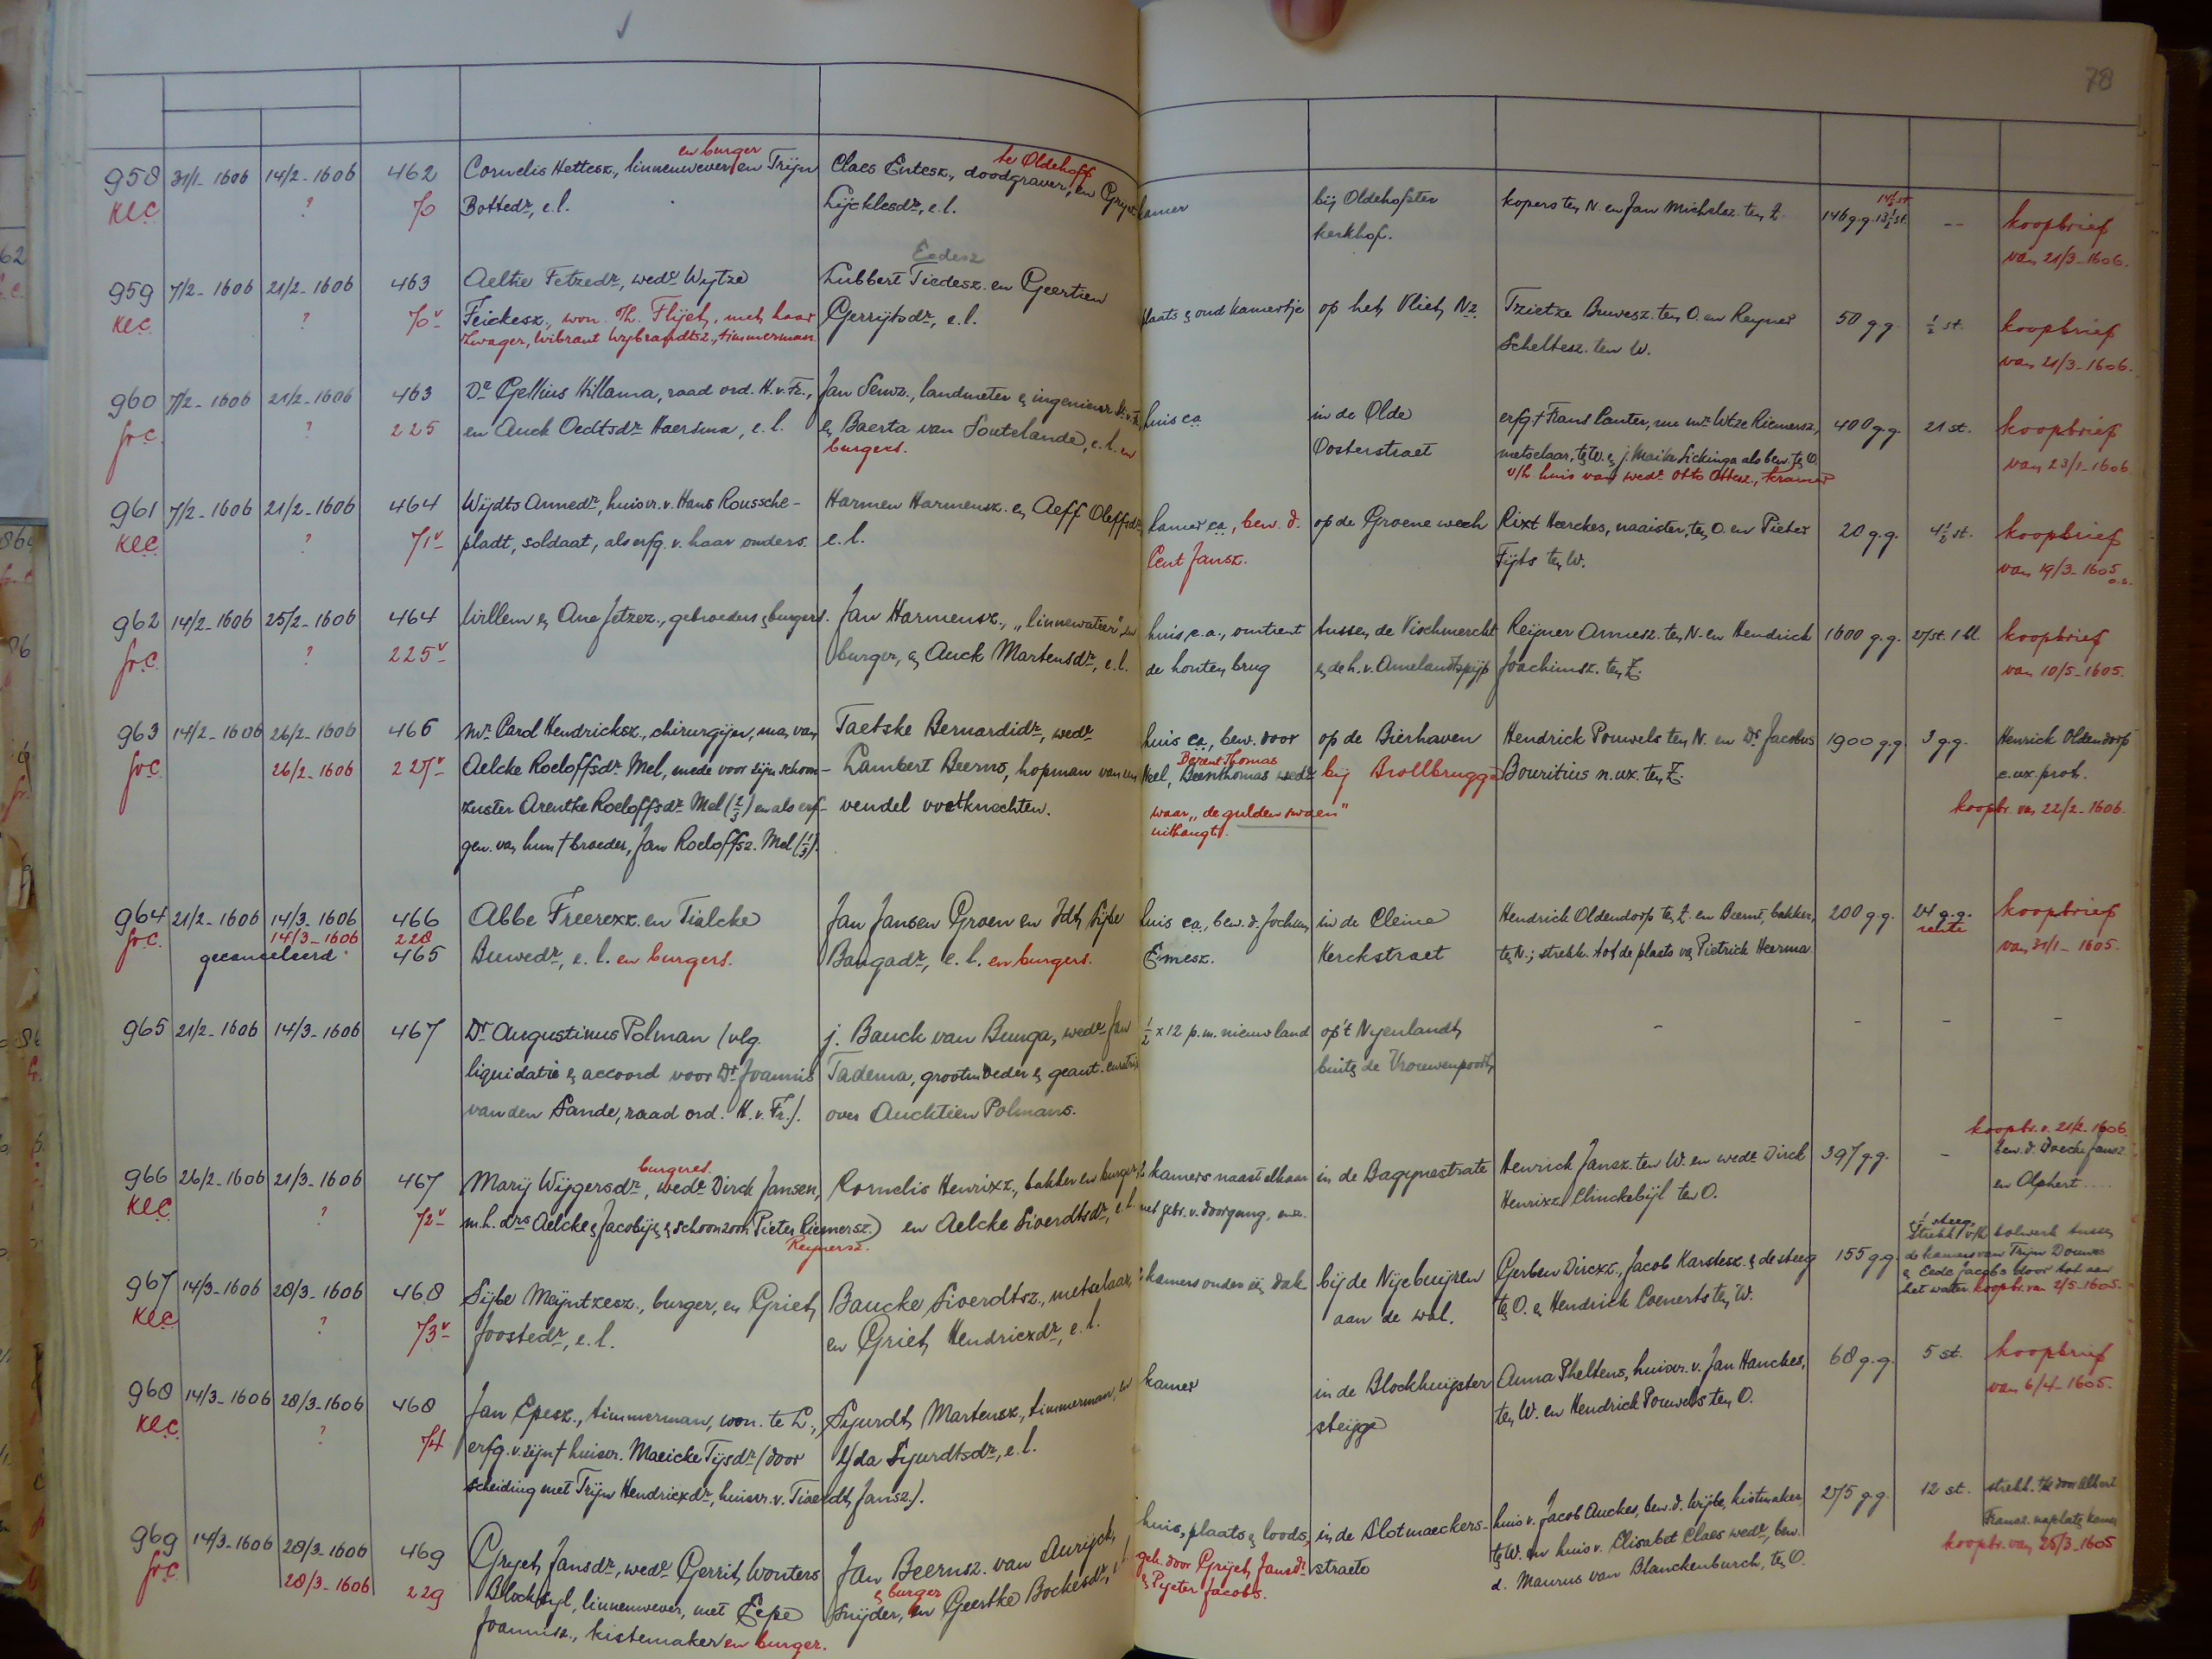 78
en burger
te Oldehoff
958 31/1-1606 14/2-1606 462 Cornelis Hettesz., linnenwever en Trijn Claes Entesz., doodgraver, en Gryet kamer bij Oldehofster kopers ten N. en Jan Michelsz. ten Z. 146 g.g. 13½ st. -- koopbrief
14½ st.
K.e.C. ? 70 Bottedr., e.l. Lijcklesdr., e.l. kerkhof. van 21/3-1606.
Eedesz
959 7/2-1606 21/2-1606 463 Aeltie Fetzedr., wedr. Wytze Lubbert Tiedesz. en Geertien plaats & oud kamertje op het Vliet, Nz. Tzietze Buwesz. ten O. en Reyner 50 g.g. ½ st. koopbrief
K.e.C. ? 70v Feickesz., won. Th. Flyet, met haar Gerrijtsdr., e.l. Scheltesz. ten W. van 21/3-1606.
zwager, Wibrant Wybrandtsz., timmerman
960 7/2-1606 21/2-1606 463 Dr. Gellius Hillama, raad ord. H.v.Fr., Jan Senwz., landmeter & ingenieur huis ca. in de Olde erfg. † Frans Canter, nu mr. Wtze Riemersz., 400 g.g. 21 st. koopbrief
Gr.C. ? 225 en Auck Oedtsdr. Haersma, e.l. & Baerta van Soutelande, e.l. en Oosterstraet metselaar, ten W. & j. Maike Sickinga als bew. ten O. van 23/1-1606
burgers. v/h huis van wedr. Otto Ottesz., kramer
961 7/2-1606 21/2-1606 464 Wijdts Annedr., huisvr. v. Hans Roussche- Harmen Harmensz. en Aeff Oleffsdr., kamer ca., bew. d. op de Groene wech Rixt Heerckes, naaister, ten O. en Pieter 20 g.g. 4½ st. koopbrief
K.e.C. ? 71v pladt, soldaat, als erfg. v. haar ouders. e.l. Cent Jansz. Fijts ten W. van 19/3-1605 o.s.
962 14/2-1606 25/2-1606 464 Willem & Ane Jetzez., gebroeders & burgers. Jan Harmensz., „linnewatier" en huis, e.a., omtrent tussen de Vischmerckt Reijner Annesz. ten N. en Hendrick 1600 g.g. 27 st. 1 bl. koopbrief
Gr.C. ? 225v burger, & Auck Martensdr., e.l. de houten brug & de h. v. Amelandtspijp Joachimsz. ten Z. van 10/5-1605.
963 14/2-1606 26/2-1606 465 mr. Carol Hendricksz., chirurgijn, man van Taetske Bernardidr., wedr. huis ca., bew. door op de Bierhaven Hendrick Pouwels ten N. en Dr. Jacobus 1900 g.g. 3 g.g. Henrick Oldendorp
Berent Thomas
Gr.C. 26/2-1606 227v Aelcke Roeloffsdr. Mel, mede voor zijn schoon- Lambert Beerns, hopman van een Neel, Beernthomas wedr. bij Brollbrugge Bouritius n. ux. ten Z. e. ux. proh.
zuster Arentke Roeloffsdr. Mel (⅔) en als erf- vendel voetknechten. waar „de gulden swaen" koopbr. van 22/2-1606.
gen. van hun † broeder, Jan Roeloffsz. Mel (⅓). uithangt.
964 21/2-1606 14/3-1606 466 Abbe Freerexz. en Tialcke Jan Jansen Groen en Idt Sijbe huis ca., bew. d. Jochum in de Cleine Hendrick Oldendorp ten Z. en Beernt, bakker, 200 g.g. 24 g.g. koopbrief
Gr.C. 14/3-1606 228 rente
gecanceleerd 465 Buwedr., e.l. en burgers. Baugadr., e.l. en burgers. Emesz. Kerckstraet ten N.; strekk. tot de plaats van Pietrick Heerma. van 31/1-1605.
965 21/2-1606 14/3-1606 467 Dr. Augustinus Polman (vlg. j. Bauck van Bunga, wedr. Jan ½ x 12 p.m. nieuwland op 't Nyenlandt, - - - -
liquidatie & accoord voor Dr. Joannis Tadema, grootmoeder & geaut. curatrix buiten de Vrouwenpoort
van den Sande, raad ord. H.v.Fr.). over Aucktien Polmans.
koopbr. v. 21/2-1606.
burgeres.
966 26/2-1606 21/3-1606 467 Marij Wijgersdr., wedr. Dirck Jansen, Cornelis Henrixz., bakker en burger, 2 kamers naast elkaar in de Bagynestrate Henrick Jansz. ten W. en wedr. Dirck 397 g.g. - bew. d. Doecke Jansz.
K.e.C. ? 72v m.h. drs. Aelcke & Jacobije & schoonzoon Pieter Riemersz.) en Aelcke Sioerdtsdr., e.l. met gebr. v. doorgang, enz. Henrixz. Clinckebijl ten O. en Alphert ....
Reynersz.
967 14/3-1606 28/3-1606 468 Sijbe Meijntzesz., burger, en Griet, Baucke Sioerdtsz., metselaar, kamers onder één dak bij de Nijebuijren Gerben Dircxz., Jacob Karstesz. & de steeg 155 g.g. strekk. v/h bolwerk tussen
½ steeg
K.e.C. ? 73v Joostedr., e.l. en Griet, Hendricxdr., e.l. aan de wal. ten O. & Hendrick Coenerts ten W. de kamers van Trijn Douwes
& Eede Jacobs door tot aan
het water. koopbr. van 2/5-1605.
968 14/3-1606 28/3-1606 468 Jan Epesz., timmerman, won. te L., Sjurdt, Martensz., timmerman, en kamer in de Blockhuijster Anna Pheltens, huisvr. v. Jan Hanckes, 68 g.g. 5 st. koopbrief
K.e.C. ? 74 erfg. v. zijn † huisvr. Maeicke Tijsdr. (door Yda Sjurdtsdr., e.l. steijge ten W. en Hendrick Pouwels ten O. van 6/4-1605.
scheiding met Trijn Hendricxdr., huisvr. v. Tiaerdt, Jansz.).
969 14/3-1606 28/3-1606 469 Gryet, Jansdr., wedr. Gerrit Wouters Jan Beernsz. van Aurijch, huis, plaats & loods, in de Slotmaeckers- huis v. Jacob Auckes, bew. d. Wijbe, kistmaker, 275 g.g. 12 st. strekk. tot door Albert
Gr.C. 28/3-1606 229 Blockbijl, linnenwever, met Eepe snijder, & burger en Geertke Bockesdr., e.l. geh. door Grijet, Jansdr. straete ten W. en huis v. Elisabet Claes wedr., bew. Fransz. na plaats, kamer
Joannisz., kistemaker en burger. & Pyeter Jacobs. d. Maurus van Blanckenburch, ten O. koopbr. van 25/3-1605